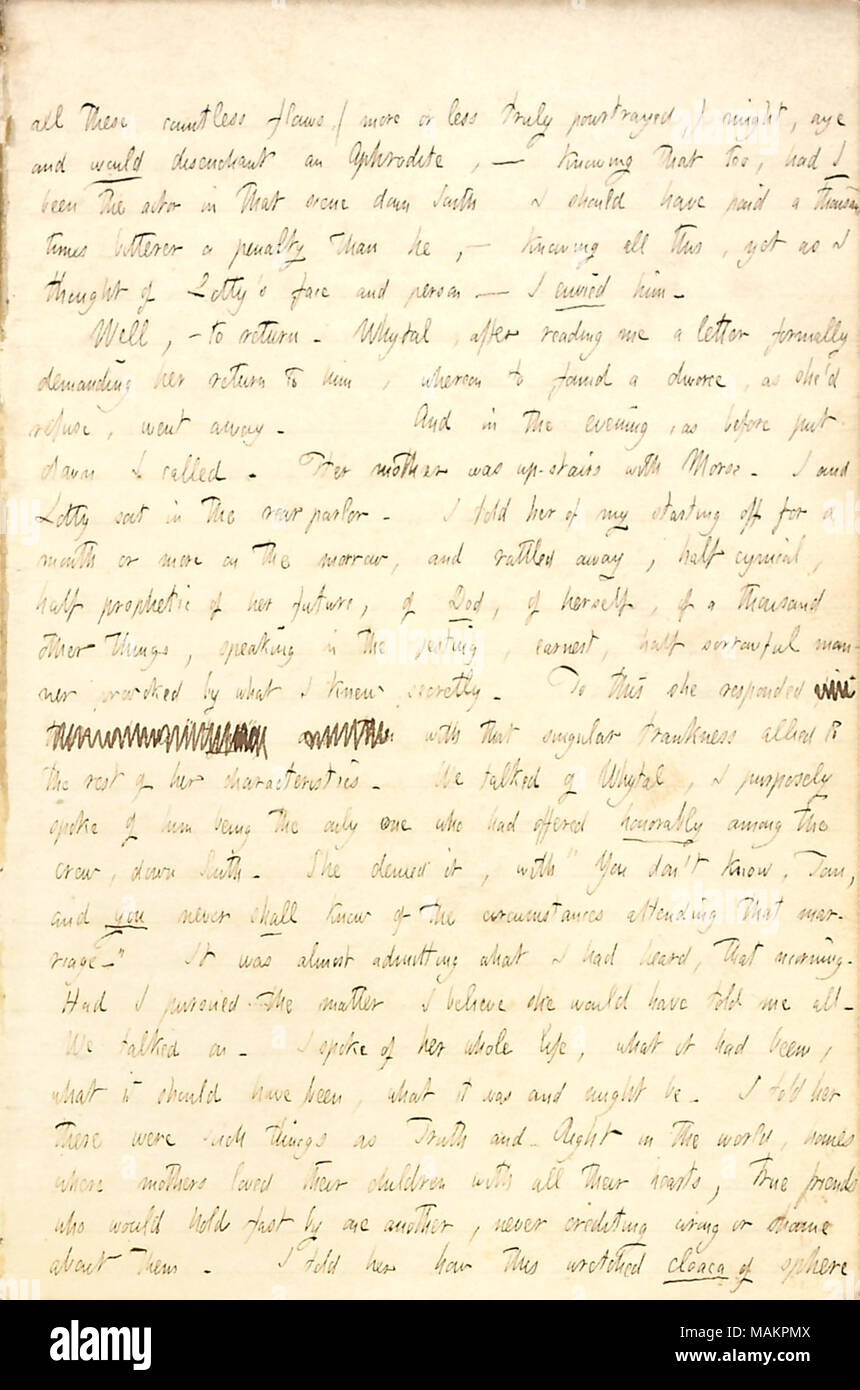 all these countless flaws, (more or less truly pourtrayed,) might, aye
and would disenchant an Aphrodite, — knowing that too, had I
been the actor in that scene down South I should have paid a thousand
times bitterer a penalty than he, — knowing all this, yet as I
thought of Lotty's face and person — I envied him —
Well, — to return — Whytal, after reading me a letter formally
demanding her return to him, whereon to found a divorce, as she'd
refuse, went away — And in the evening, as before put
down I called — Her mother was up-stairs with Morse — I and
Lotty sat in the rear parlor — I told her of my starting off for a
month or more on the morrow, and rattled away, half cynical,
half prophetic of her future, of Dod, of herself, of a thousand
other things, speaking in the jesting, earnest, half sorrowful man-
ner provoked by what I knew secretly — To this she responded
with that singular frankness allied to
the rest of her characteristics — We talked of Whytal, I purposely
spoke of him being the only one who had offered honorably among the
crew, down South — She denied it, with "You don't know, Tom,
and you never shall know of the circumstances attending that mar-
riage —" It was almost admitting what I had heard, that morning —
Had I pursued the matter I believe she would have told me all —
We talked on — I spoke of her whole life, what it had been,
what it should have been, what it was and might be — I told her
there were such things as Truth and Right in the world, homes
where mothers loved their children with all their hearts, true friends
who would hold fast by one another, never crediting wrong or shame
about them — I told her how this wretched cloaca of sphere
alamy
Image ID: MAKPMX
www.alamy.com